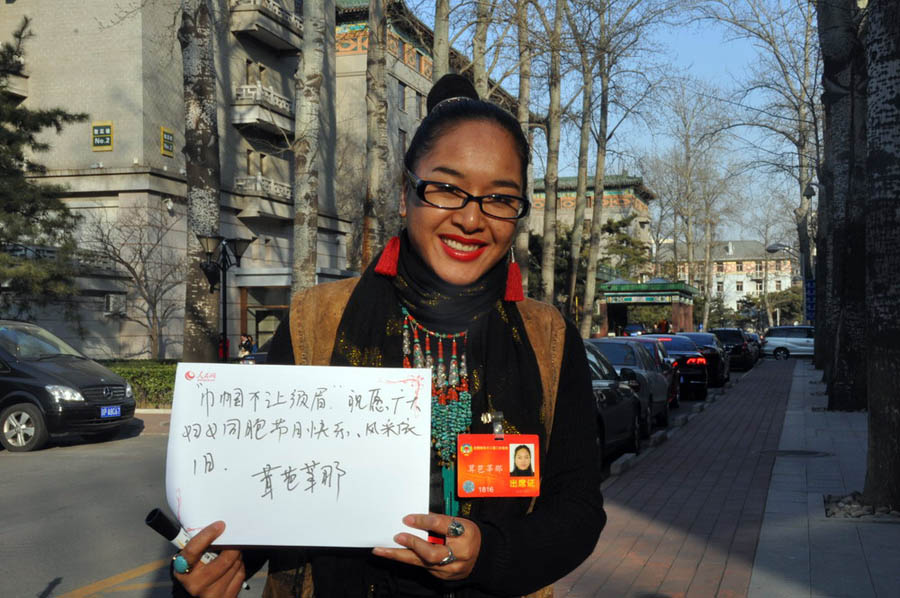 敬业楼
No.2
人民网
"巾帼不让须眉"祝愿广大
妇女同胞节日快乐、风采依
旧.
茸芭莘那
茸芭莘那
1816
出席证